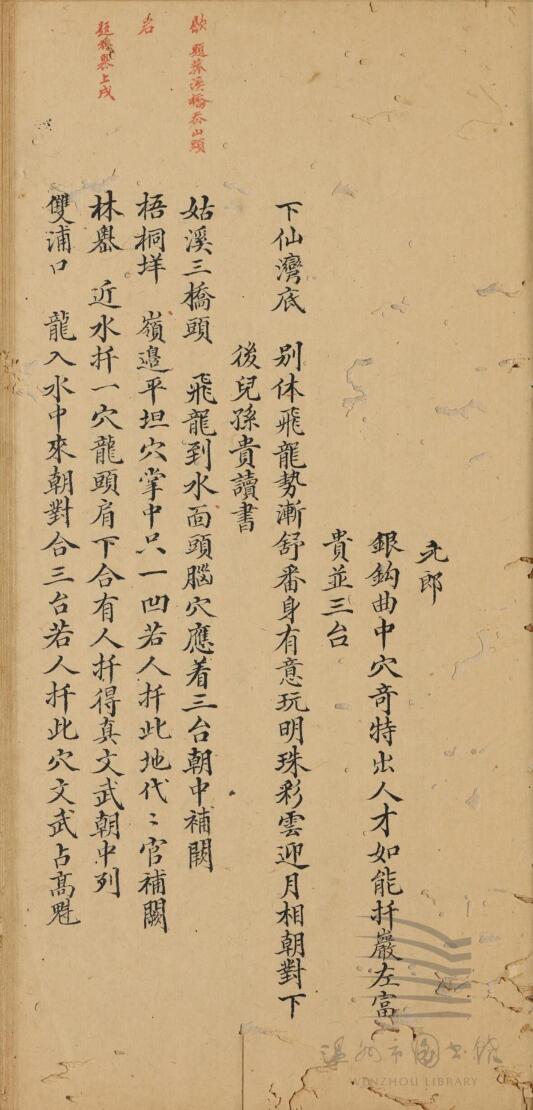 允郎
銀鈎曲中穴奇特出人才如能扦巖左富
貴並三台
下仙灣底 別体飛龍勢漸舒番身有意玩明珠彩雲迎月相朝對下
後兒孫貴讀書
姑溪三橋頭 飛龍到水面頭腦穴應着三台朝中補闕
梧桐垟 嶺邊平坦穴掌中只一凹若人扦此地代〻官補闕
林嶴 近水扦一穴龍頭肩下合有人扦得真文武朝中列
雙浦口 龍入水中來朝對合三台若人扦此穴文武占高魁
題葬溪橋岙山頭
岩
題 嶴上戌
溫州市圖書館
WENZHOU LIBRARY